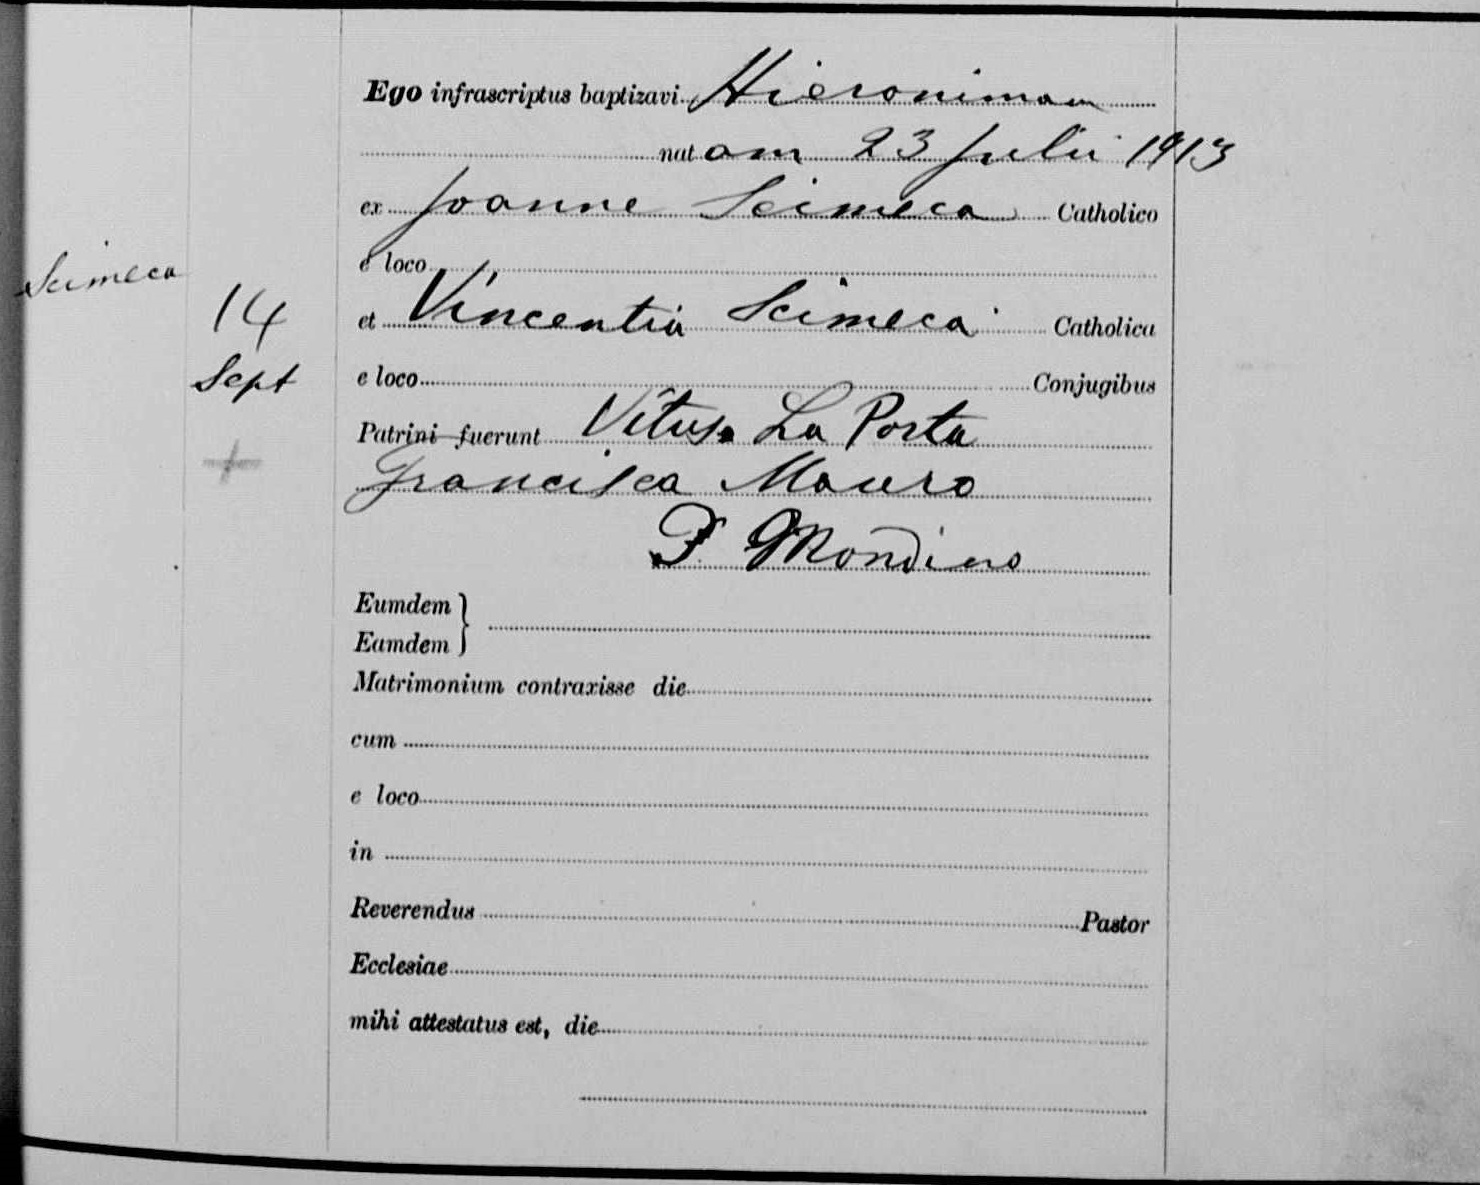 Ego infrascriptus baptizavi Hieronimam
nat am 23 Julii 1913
ex Joanne Scimeca Catholico
e loco
Scimeca
14
Sept
et Vincentia Scimeca Catholica
e loco Conjugibus
Patrini fuerunt Vitus La Porta
Francisca Mauro
F Mondino
Eumdem
Eamdem
Matrimonium contraxisse die
cum
e loco
in
Reverendus Pastor
Ecclesiae
mihi attestatus est, die